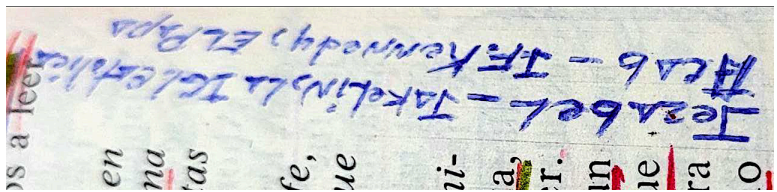 Jezabel - Jakelin, La IGL catolica
Acab - J.F. Kennedy, EL Papa
os a leer
en
na
tas
fe,
ue
ni-
a,
er.
un
ue
ra
lo